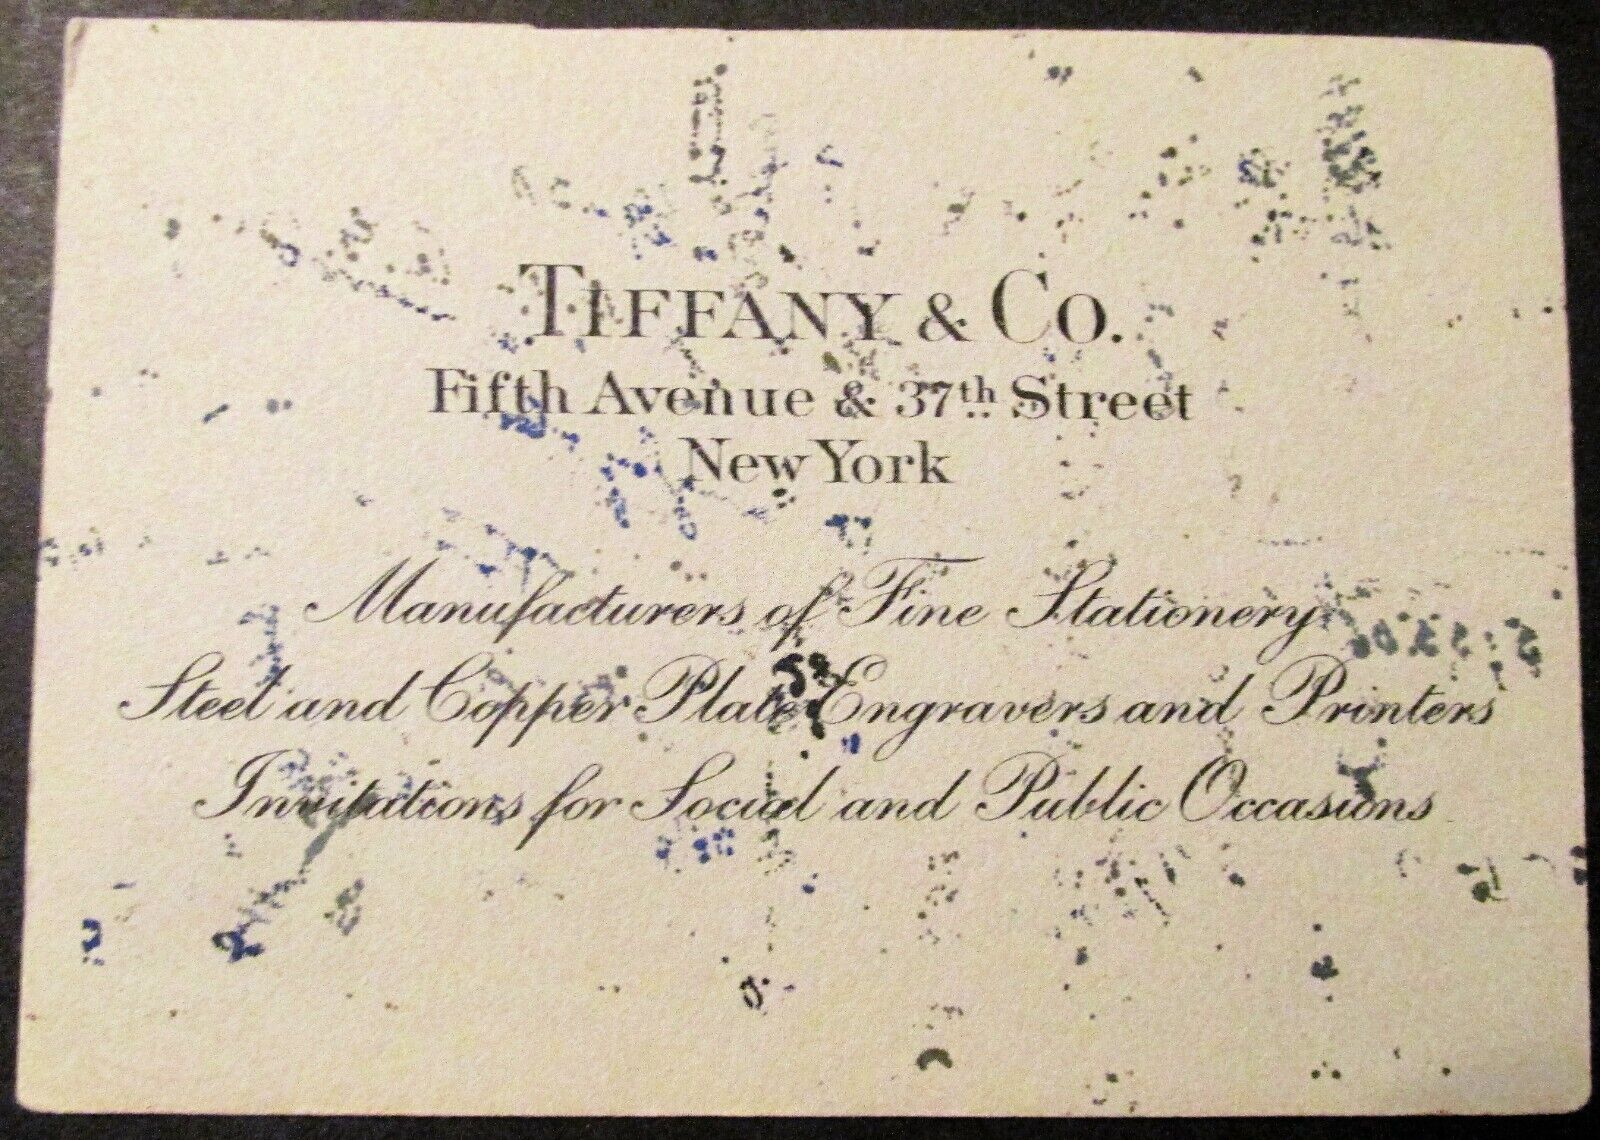 TIFFANY & CO.
Fifth Avenue & 37th Street
New York
Manufacturers of Fine Stationery
Steel and Copper Plate Engravers and Printers
Invitations for Social and Public Occasions